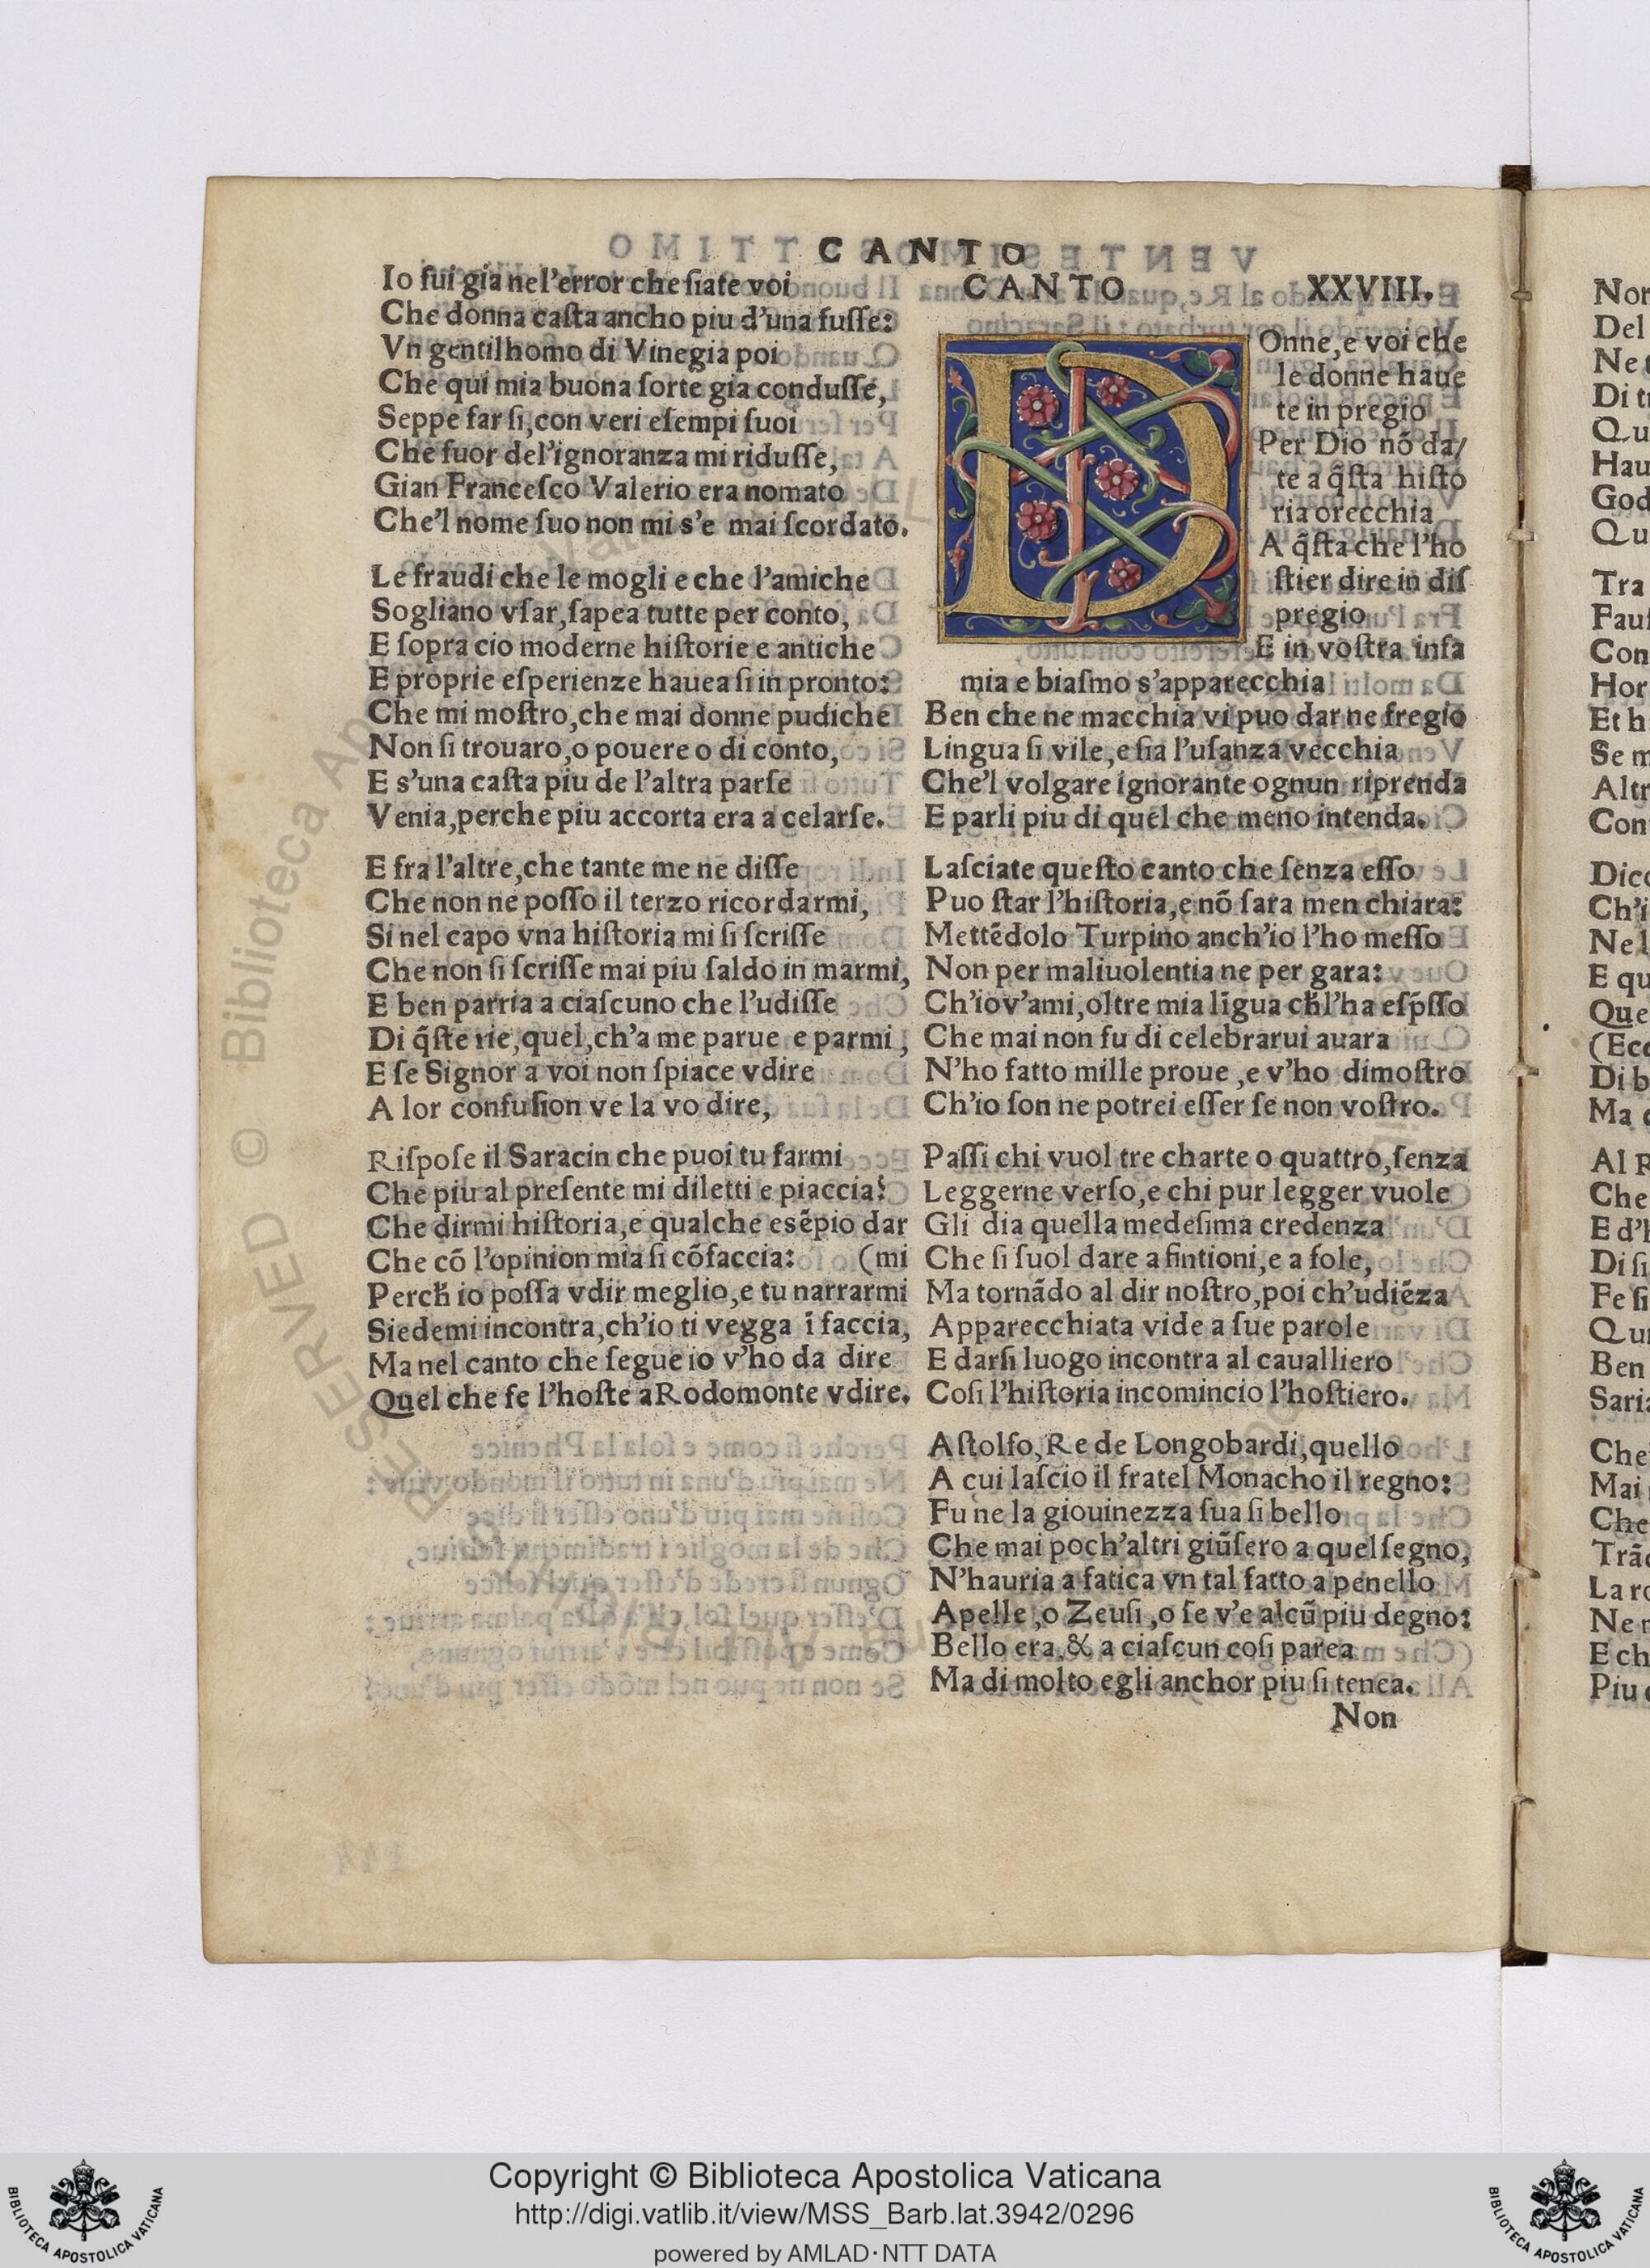 CANTO
Io fui gia nel'error che ſiate voi
Che donna caſta ancho piu d'una fuſſe:
Vn gentilhomo di Vinegia poi
Che qui mia buona ſorte gia conduſſe,
Seppe far ſi,con veri eſempi ſuoi
Che fuor del'ignoranza mi riduſſe,
Gian Franceſco Valerio era nomato
Che'l nome ſuo non mi s'e mai ſcordato.
Le fraudi che le mogli e che l'amiche
Sogliano vſar,ſapea tutte per conto,
E ſopra cio moderne hiſtorie e antiche
E proprie eſperienze hauea ſi in pronto:
Che mi moſtro,che mai donne pudiche
Non ſi trouaro,o pouere o di conto,
E s'una caſta piu de l'altra parſe
Venia,perche piu accorta era a celarſe.
E fra l'altre,che tante me ne diſſe
Che non ne poſſo il terzo ricordarmi,
Si nel capo vna hiſtoria mi ſi ſcriſſe
Che non ſi ſcriſſe mai piu ſaldo in marmi,
E ben parria a ciaſcuno che l'udiſſe
Di q̃ſte rie,quel,ch'a me parue e parmi,
E ſe Signor a voi non ſpiace vdire
A lor confuſion ve la vo dire,
Riſpoſe il Saracin che puoi tu farmi
Che piu al preſente mi diletti e piaccia?
Che dirmi hiſtoria,e qualche esẽpio dar
Che cõ l'opinion mia ſi cõfaccia: (mi
Perch̃ io poſſa vdir meglio,e tu narrarmi
Siedemi incontra,ch'io ti vegga ĩ faccia,
Ma nel canto che ſegue io v'ho da dire
Quel che fe l'hoſte a Rodomonte vdire.
CANTO XXVIII.
D
Onne,e voi che
le donne haue
te in pregio
Per Dio nõ da/
te a q̃ſta hiſto
ria orecchia
A q̃ſta che l'ho
ſtier dire in diſ
pregio
E in voſtra infa
mia e biaſmo s'apparecchia
Ben che ne macchia vi puo dar ne fregio
Lingua ſi vile,e ſia l'uſanza vecchia
Che'l volgare ignorante ognun riprenda
E parli piu di quel che meno intenda.
Laſciate queſto canto che ſenza eſſo
Puo ſtar l'hiſtoria,e nõ ſara men chiara:
Mettẽdolo Turpino anch'io l'ho meſſo
Non per maliuolentia ne per gara:
Ch'io v'ami,oltre mia lĩgua ch̃ l'ha eſp̃ſſo
Che mai non fu di celebrarui auara
N'ho fatto mille proue ,e v'ho dimoſtro
Ch'io ſon ne potrei eſſer ſe non voſtro.
Paſſi chi vuol tre charte o quattro,ſenza
Leggerne verſo,e chi pur legger vuole
Gli dia quella medeſima credenza
Che ſi ſuol dare a fintioni,e a fole,
Ma tornãdo al dir noſtro,poi ch'udiẽza
Apparecchiata vide a ſue parole
E darſi luogo incontra al caualliero
Coſi l'hiſtoria incomincio l'hoſtiero.
Aſtolfo,Re de Longobardi,quello
A cui laſcio il fratel Monacho il regno:
Fu ne la giouinezza ſua ſi bello
Che mai poch'altri giũſero a quel ſegno,
N'hauria a fatica vn tal fatto a penello
Apelle ,o Zeuſi ,o ſe v'e alcũ piu degno:
Bello era,& a ciaſcun coſi parea
Ma di molto egli anchor piu ſi tenea.
Non
Nor
Del
Ne t
Di t
Qu
Hau
God
Qu
Tra
Fauſ
Con
Hor
Et h
Se m
Altr
Con
Dico
Ch'i
Ne l
E qu
Que
(Ecc
Di b
Ma
Al R
Che
E d'
Di ſi
Fe ſi
Qu
Ben
Saria
Che
Mai
Che
Trã
La ro
Ne
E ch
Piu
RESERVED © Biblioteca Ap
Copyright © Biblioteca Apostolica Vaticana
http://digi.vatlib.it/view/MSS_Barb.lat.3942/0296
powered by AMLAD·NTT DATA
BIBLIOTECA APOSTOLICA VATICANA
BIBLIOTECA APOSTOLICA VATICANA